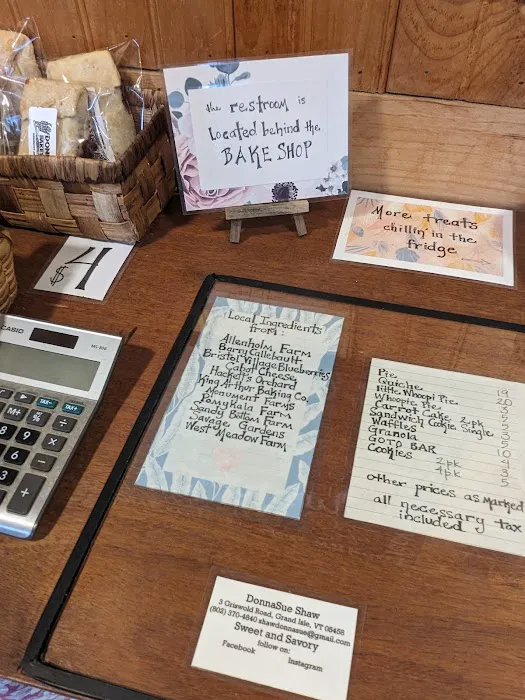 the restroom is
Located behind the
BAKE SHOP
More treats
chillin' in the
fridge
$4
CASIO
Local Ingredients
from:
Allenholm Farm
Barry Callebaut
Bristol Village Blueberries
Cabot Cheese
Hackett's Orchard
King Arthur Baking Co.
Monument Farms
Pennykala Farm
Sandy Bottom Farm
Savage Gardens
West Meadow Farm
Pie 19
Quiche 20
little Whoopi Pie
Whoopie Pie
Carrot Cake 2-pk
Sandwich Cookie Single
Waffles
Granola
GOTO BAR
Cookies 2pk
4pk
other prices as marked
all necessary tax
included
DonnaSue Shaw
3 Griswold Road, Grand Isle, VT 05458
(802) 370-4840 shawdonnasue@gmail.com
Sweet and Savory
follow on:
Facebook
Instagram